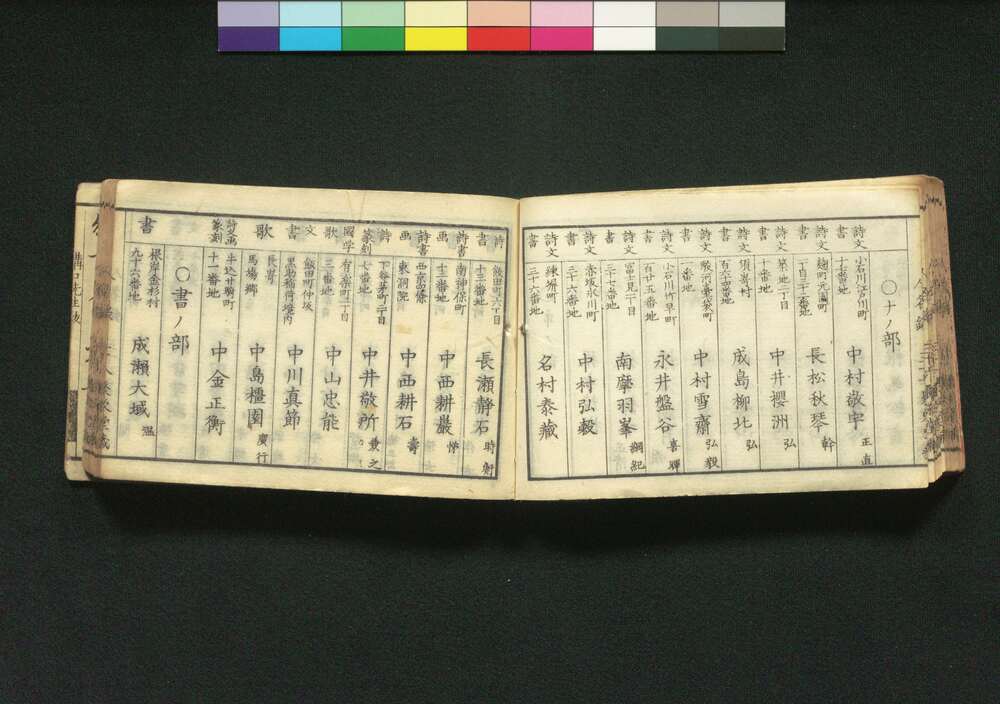 〇ナノ部
詩文
書
小石川江戸川町
十七番地
中村敬宇
正直
詩文
書
麹町元園町
二丁目三十五番地
長松秋琴
幹
詩文
書
築地二丁目
十番地
中井櫻洲
弘
詩文
書
須嵜村
百六十四番地
成島柳北
弘
詩文
書
駿河臺袋町
一番地
中村雪齋
弘毅
詩文
書
小石川竹早町
百廿五番地
永井盤谷
喜暉
詩文
書
富士見町二丁目
三十七番地
南摩羽峯
綱紀
詩文
書
赤坂氷川町
三十六番地
中村弘毅
詩文
書
練塀町
三十六番地
名村泰藏
詩
書
飯田町六丁目
十三番地
長瀬静石
時衡
詩書
画
南神保町
十三番地
中西耕巖
詩書
画
西京富小路四條
東洞院
中西耕石
壽
詩
篆刻
下谷茅町二丁目
七番地
中井敬所
兼之
国学
歌
有楽町一丁目
三番地
中山忠能
文
書
飯田町仲坂
黒助稲荷境内
中川真節
歌
長嵜
馬場郷
中島橿園
廣行
詩文画
篆刻
牛込廿騎町
十一番地
中金正衡
〇書ノ部
書
根岸金杉村
九十六番地
成瀬大域
温